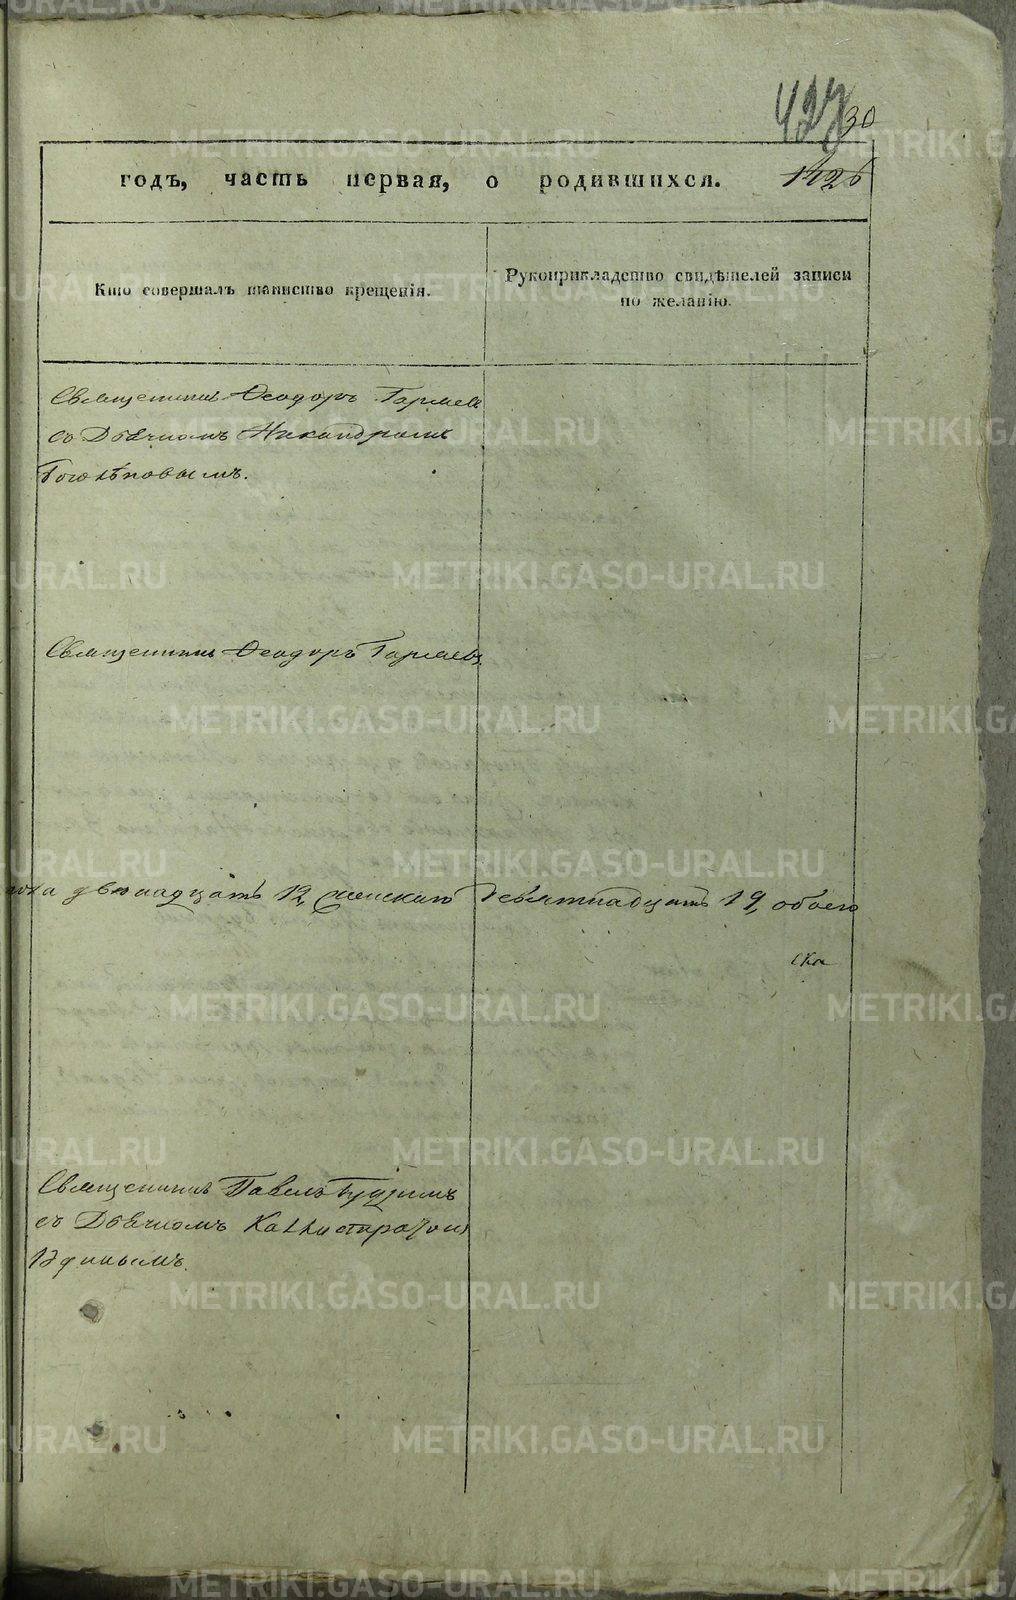 427
30
годъ, часть первая, о родившихся. 1426
Кто совершалъ таинство крещенія.
Рукоприкладство свидѣтелей записи
по желанію.
Священникъ Ѳеодоръ
со Дьячкомъ Никандромъ
Боголѣповымъ.
Священникъ Ѳеодоръ
двенадцать 12, женскаго девятнадцать 19, обоего
Священникъ Павелъ
съ Дьячкомъ Каллистратомъ
METRIKI.GASO-URAL.RU